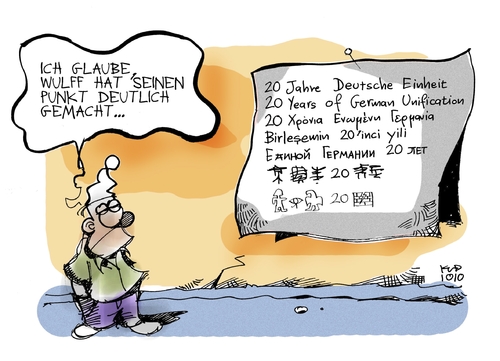 ICH GLAUBE,
WULFF HAT SEINEN
PUNKT DEUTLICH
GEMACHT...
20 Jahre Deutsche Einheit
20 Years of German Unification
20 Χρόνια Ενωμένη Γερμανία
Birleşemin 20'inci yili
Единой Германии 20 лет
20
20
KLP
1010